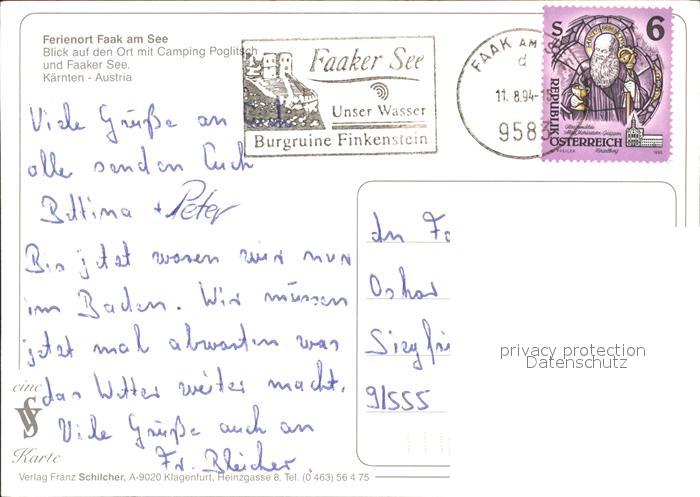 Ferienort Faak am See
Blick auf den Ort mit Camping Poglitsch
und Faaker See.
Kärnten - Austria
Faaker See
Unser Wasser
Burgruine Finkenstein
FAAK AM
d
11. 8.94-1
9583
S 6
REPUBLIK
ÖSTERREICH
Viele Grüße an Euch
alle senden Euch
Bettina + Peter
Bis jetzt waren wir nur
im Baden. Wir müssen
jetzt mal abwarten was
das Wetter weiter macht.
Viele Grüße auch an
Fr. Bleicher.
An Fa
Oskar
Siegfri
91555
privacy protection
Datenschutz
eine
Karte
Verlag Franz Schilcher, A-9020 Klagenfurt, Heinzgasse 8, Tel. (0 463) 56 4 75